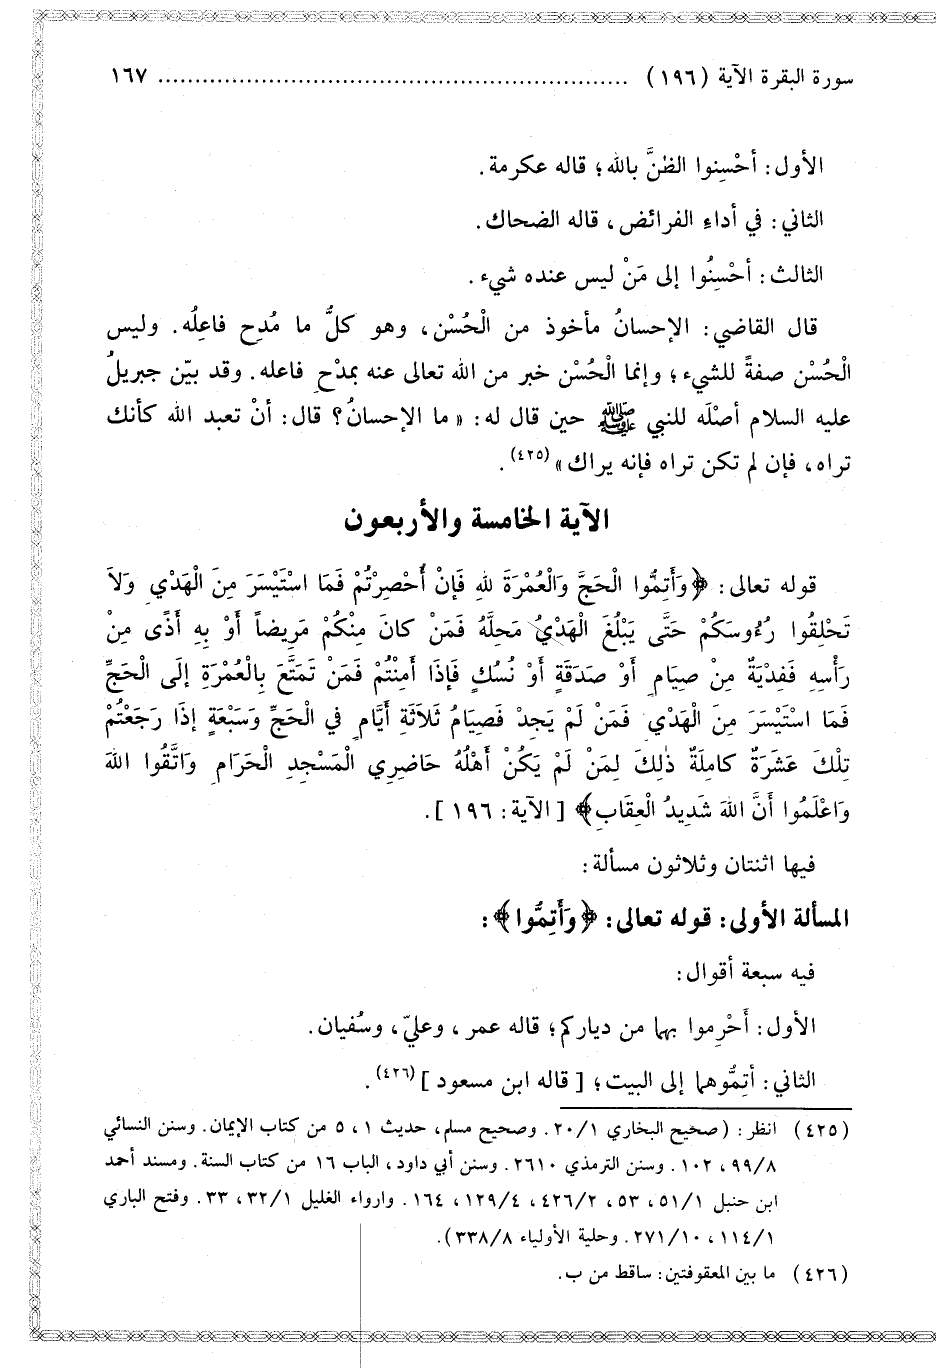 سورة البقرة الآية (١٩٦) ................................................................ ١٦٧
الأول: أحْسِنوا الظنَّ بالله؛ قاله عكرمة.
الثاني: في أداءِ الفرائض، قاله الضحاك.
الثالث: أحْسِنُوا إلى مَنْ ليس عنده شيء.
قال القاضي: الإحسانُ مأخوذ من الْحُسْن، وهو كلُّ ما مُدِح فاعِلُه. وليس
الْحُسْن صفةً للشيء؛ وإنما الْحُسْن خبر من الله تعالى عنه بمدْحِ فاعله. وقد بيّن جبريلُ
عليه السلام أصْلَه للنبي ﷺ حين قال له: « ما الإحسانُ؟ قال: أنْ تعبد الله كأنك
تراه، فإن لم تكن تراه فإنه يراك» (٤٢٥).
الآية الخامسة والأربعون
قوله تعالى: ﴿وَأَتِمُّوا الْحَجَّ وَالْعُمْرَةَ للهِ فَإِنْ أُحْصِرْتُمْ فَمَا اسْتَيْسَرَ مِنَ الْهَدْيِ وَلاَ
تَحْلِقُوا رُءُوسَكُمْ حَتَّى يَبْلُغَ الْهَدْيُ مَحِلَّهُ فَمَنْ كانَ مِنْكُمْ مَرِيضاً أَوْ بِهِ أَذًى مِنْ
رَأْسِهِ فَفِدْيَةٌ مِنْ صِيَامٍ أَوْ صَدَقَةٍ أَوْ نُسُكٍ فَإِذَا أَمِنْتُمْ فَمَنْ تَمَتَّعَ بِالْعُمْرَةِ إلَى الْحَجِّ
فَمَا اسْتَيْسَرَ مِنَ الْهَدْيِ فَمَنْ لَمْ يَجِدْ فَصِيَامُ ثَلاَثَةِ أَيَّامٍ في الْحَجِّ وَسَبْعَةٍ إذَا رَجَعْتُمْ
تِلْكَ عَشَرَةٌ كامِلَةٌ ذٰلِكَ لِمَنْ لَمْ يَكُنْ أَهْلُهُ حَاضِرِي الْمَسْجِدِ الْحَرَامِ وَاتَّقُوا اللهَ
وَاعْلَمُوا أَنَّ اللهَ شَدِيدُ الْعِقَابِ﴾ [ الآية: ١٩٦ ].
فيها اثنتان وثلاثون مسألة:
المسألة الأولى: قوله تعالى: ﴿وَأَتِمُّوا﴾:
فيه سبعة أقوال:
الأول: أَحْرِموا بهما من دياركم؛ قاله عمر، وعليّ، وسُفيان.
الثاني: أتِمُّوهما إلى البيت؛ [ قاله ابن مسعود ] (٤٢٦).
(٤٢٥) انظر: (صحيح البخاري ٢٠/١. وصحيح مسلم، حديث ١، ٥ من كتاب الإيمان. وسنن النسائي
٩٩/٨، ١٠٢. وسنن الترمذي ٢٦١٠. وسنن أبي داود، الباب ١٦ من كتاب السنة. ومسند أحمد
ابن حنبل ٥١/١، ٥٣، ٤٢٦/٢، ١٢٩/٤، ١٦٤. وارواء الغليل ٣٢/١، ٣٣. وفتح الباري
١١٤/١، ٢٧١/١٠. وحلية الأولياء ٣٣٨/٨).
(٤٢٦) ما بين المعقوفتين: ساقط من ب.